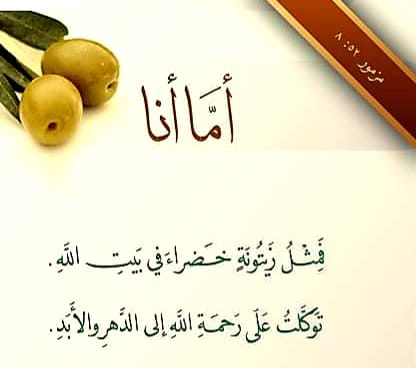 مزمور ٥٢: ٨
أمَّا أنا
فَمِثْلُ زَيتُونَةٍ خَضراءَ في بَيتِ اللَّهِ.
تَوَكَّلتُ عَلَى رَحمَةِ اللَّهِ إلى الدَّهرِ والأَبَدِ.